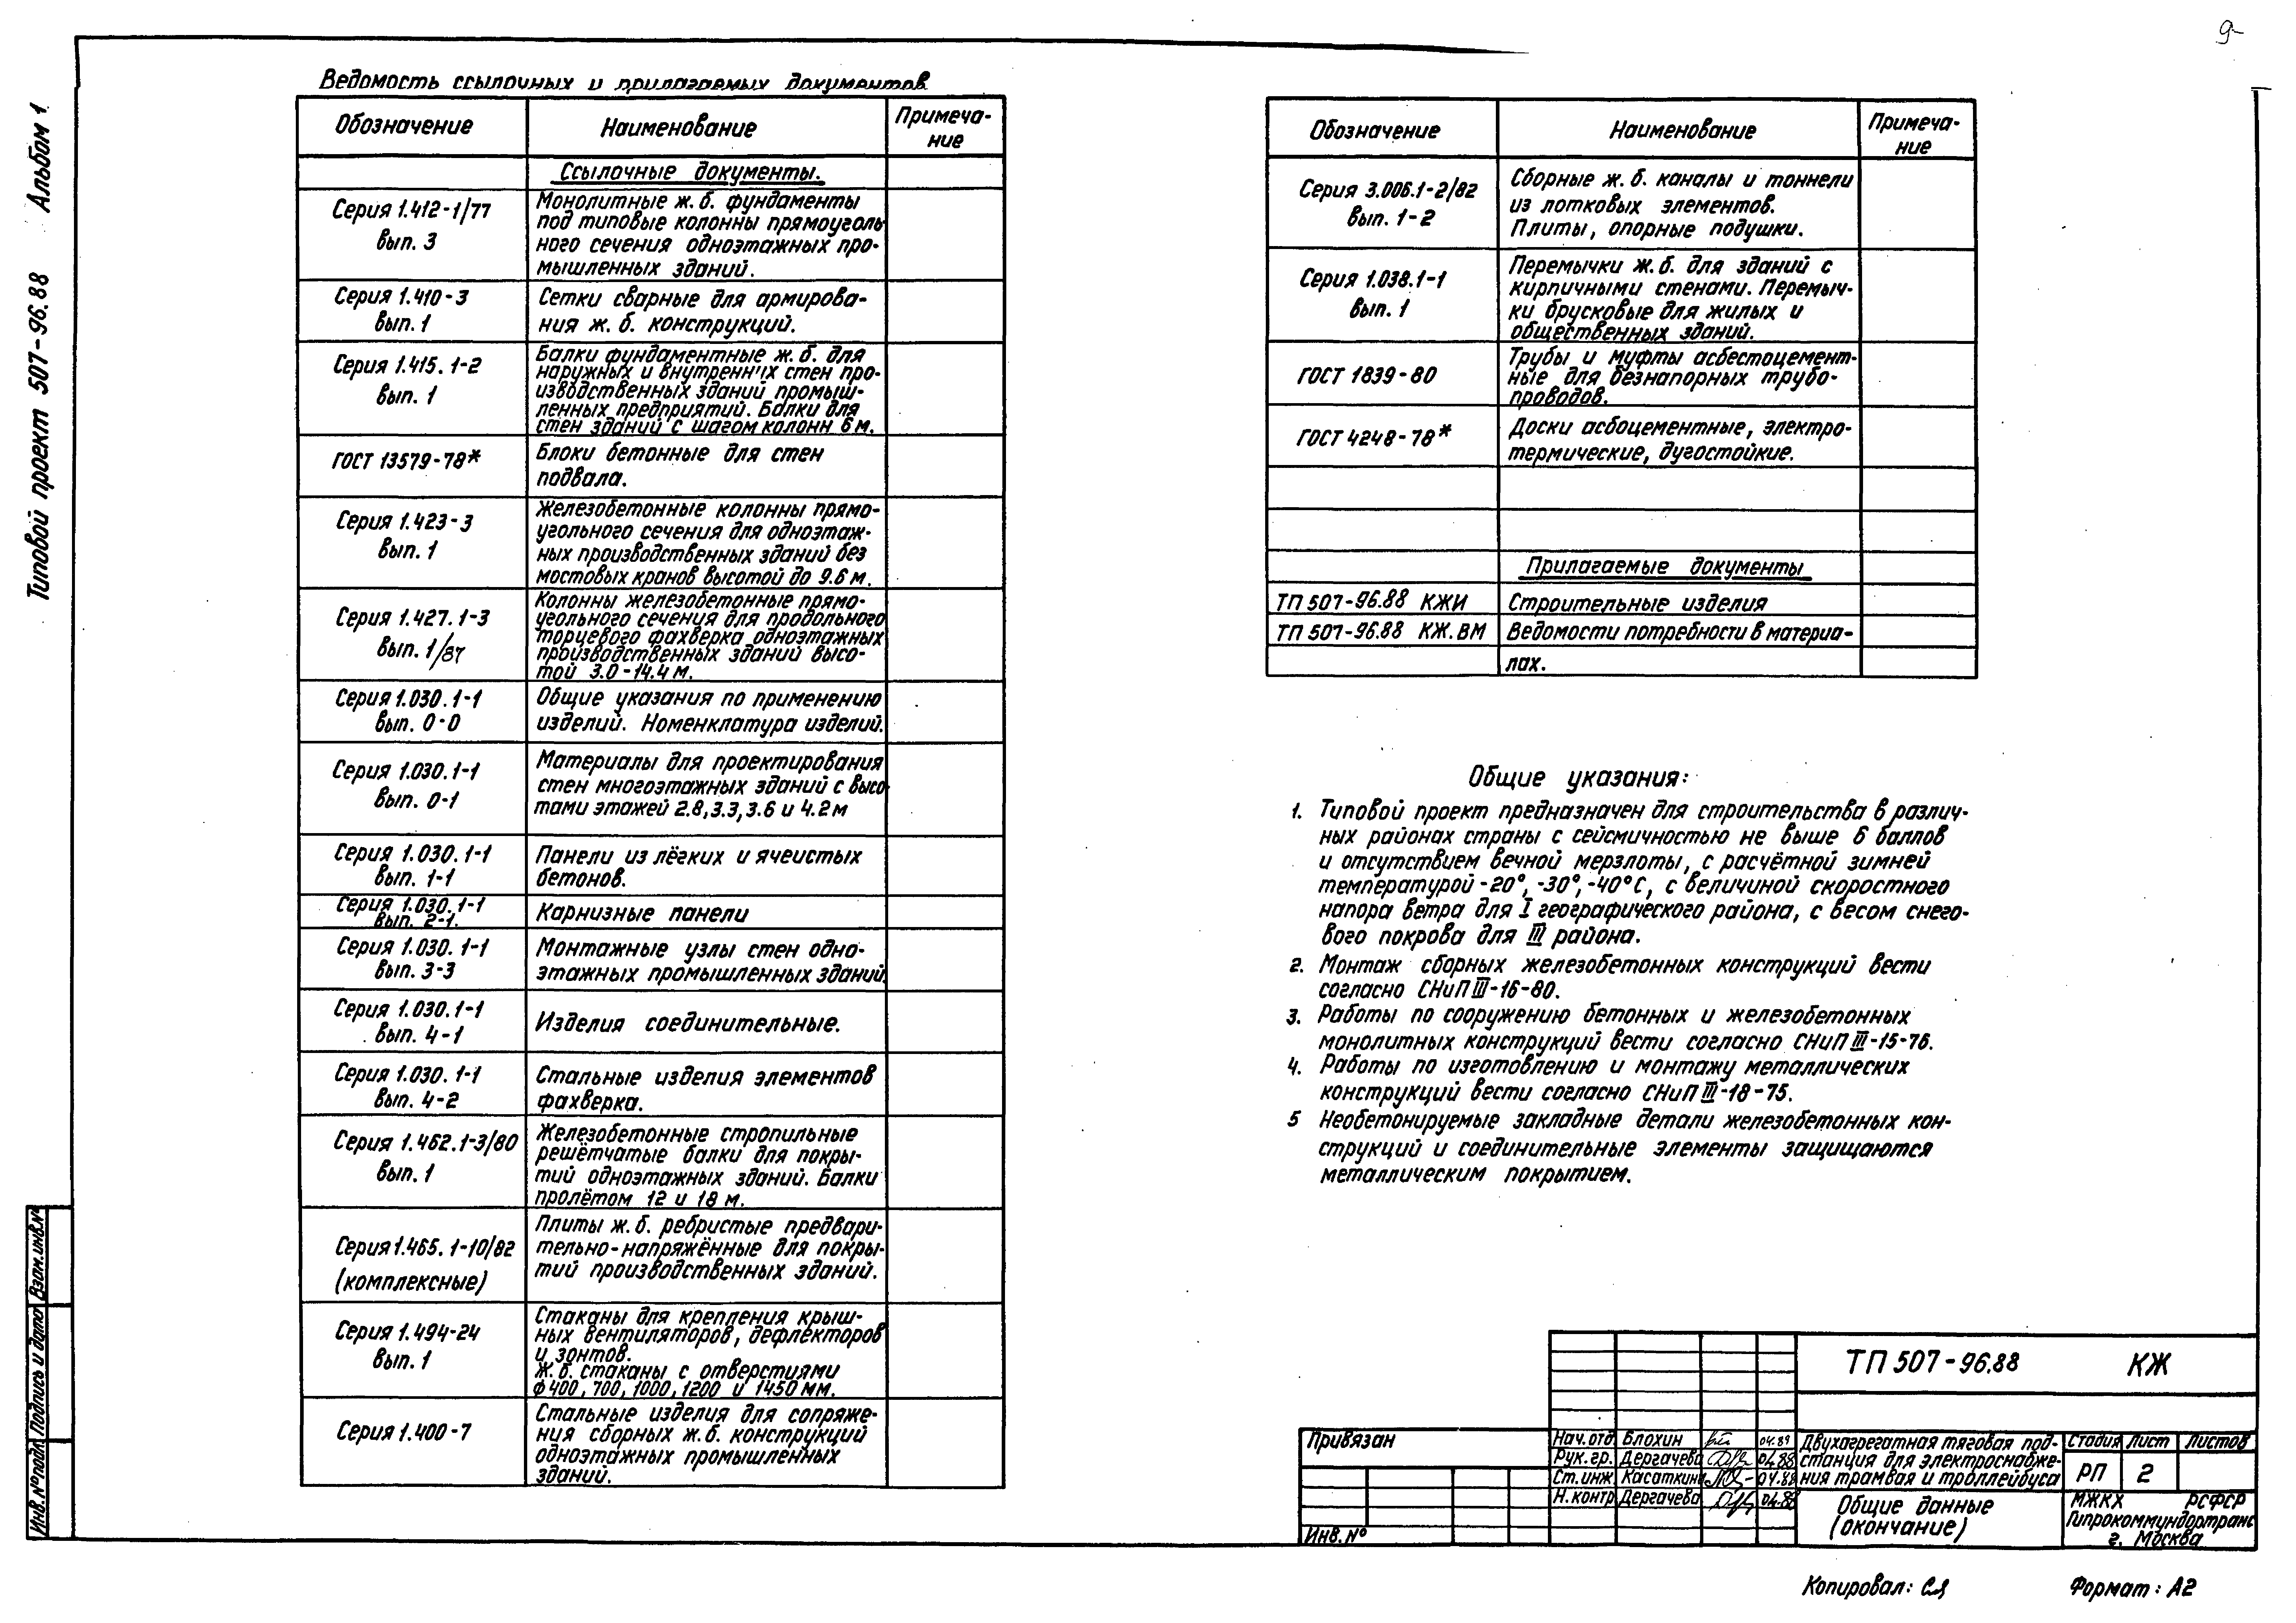 9-
Типовой проект 507-96.88 Альбом 1
Ведомость ссылочных и прилагаемых документов
Обозначение Наименование Примеча-
ние
Ссылочные документы.
Серия 1.412-1/77
вып. 3
Монолитные ж.б. фундаменты
под типовые колонны прямоуголь
ного сечения одноэтажных про-
мышленных зданий.
Серия 1.410-3
вып. 1
Сетки сварные для армирова-
ния ж.б. конструкций.
Серия 1.415.1-2
вып. 1
Балки фундаментные ж.б. для
наружных и внутренних стен про-
изводственных зданий промыш-
ленных предприятий. Балки для
стен зданий с шагом колонн 6 м.
ГОСТ 13579-78*
Блоки бетонные для стен
подвала.
Серия 1.423-3
вып. 1
Железобетонные колонны прямо-
угольного сечения для одноэтаж-
ных производственных зданий без
мостовых кранов высотой до 9.6 м.
Серия 1.427.1-3
вып. 1/87
Колонны железобетонные прямо-
угольного сечения для продольного
торцевого фахверка одноэтажных
производственных зданий высо-
той 3.0-14.4 м.
Серия 1.030.1-1
вып. 0-0
Общие указания по применению
изделий. Номенклатура изделий.
Серия 1.030.1-1
вып. 0-1
Материалы для проектирования
стен многоэтажных зданий с высо
тами этажей 2.8, 3.3, 3.6 и 4.2 м
Серия 1.030.1-1
вып. 1-1
Панели из лёгких и ячеистых
бетонов.
Серия 1.030.1-1
вып. 2-1.
Карнизные панели
Серия 1.030.1-1
вып. 3-3
Монтажные узлы стен одно-
этажных промышленных зданий.
Серия 1.030.1-1
вып. 4-1
Изделия соединительные.
Серия 1.030.1-1
вып. 4-2
Стальные изделия элементов
фахверка.
Серия 1.462.1-3/80
вып. 1
Железобетонные стропильные
решётчатые балки для покры-
тий одноэтажных зданий. Балки
пролётом 12 и 18 м.
Серия 1.465.1-10/82
(комплексные)
Плиты ж.б. ребристые предвари-
тельно-напряжённые для покры-
тий производственных зданий.
Серия 1.494-24
вып. 1
Стаканы для крепления крыш-
ных вентиляторов, дефлекторов
и зонтов.
Ж.б. стаканы с отверстиями
ф400, 700, 1000, 1200 и 1450 мм.
Серия 1.400-7
Стальные изделия для сопряже-
ния сборных ж.б. конструкций
одноэтажных промышленных
зданий.
Обозначение Наименование Примеча-
ние
Серия 3.006.1-2/82
вып. 1-2
Сборные ж.б. каналы и тоннели
из лотковых элементов.
Плиты, опорные подушки.
Серия 1.038.1-1
вып. 1
Перемычки ж.б. для зданий с
кирпичными стенами. Перемыч-
ки брусковые для жилых и
общественных зданий.
ГОСТ 1839-80
Трубы и муфты асбестоцемент-
ные для безнапорных трубо-
проводов.
ГОСТ 4248-78*
Доски асбоцементные, электро-
термические, дугостойкие.
Прилагаемые документы
ТП 507-96.88 КЖИ Строительные изделия
ТП 507-96.88 КЖ.ВМ Ведомости потребности в материа-
лах.
Общие указания:
1. Типовой проект предназначен для строительства в различ-
ных районах страны с сейсмичностью не выше 6 баллов
и отсутствием вечной мерзлоты, с расчётной зимней
температурой -20°, -30°, -40°С, с величиной скоростного
напора ветра для I географического района, с весом снего-
вого покрова для III района.
2. Монтаж сборных железобетонных конструкций вести
согласно СНиП III-16-80.
3. Работы по сооружению бетонных и железобетонных
монолитных конструкций вести согласно СНиП III-15-76.
4. Работы по изготовлению и монтажу металлических
конструкций вести согласно СНиП III-18-75.
5 Необетонируемые закладные детали железобетонных кон-
струкций и соединительные элементы защищаются
металлическим покрытием.
Взам.инв.№
Подпись и дата
Инв.№подл.
ТП 507-96.88 КЖ
Привязан
Инв.№
Нач.отд. Блохин 04.89
Рук.гр. Дергачева 04.88
Ст.инж. Касаткина 04.88
Н.контр. Дергачева 04.88
Двухагрегатная тяговая под-
станция для электроснабже-
ния трамвая и троллейбуса
Стадия Лист Листов
РП 2
Общие данные
(окончание)
МЖКХ РСФСР
Гипрокоммундортранс
г. Москва
Копировал: Формат: А2